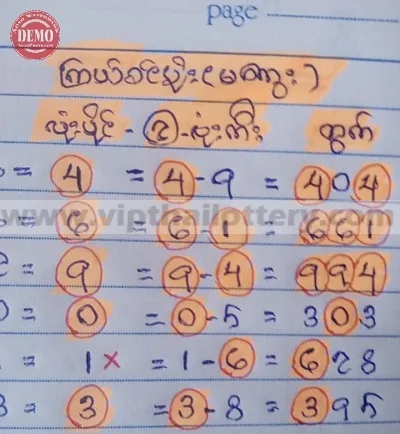 DEMO
page
ကြယ်စင်မျိုး(မကွေး)
လုံးပိုင် - ၃ - လုံးကီး ထွက်
= 4 = 4-9 = 404
www.vipthailottery.com
= 6 = 6-1 = 661
= 9 = 9-4 = 994
0 = 0 = 0-5 = 303
= 1 × = 1-6 = 628
3 = 3 = 3-8 = 395